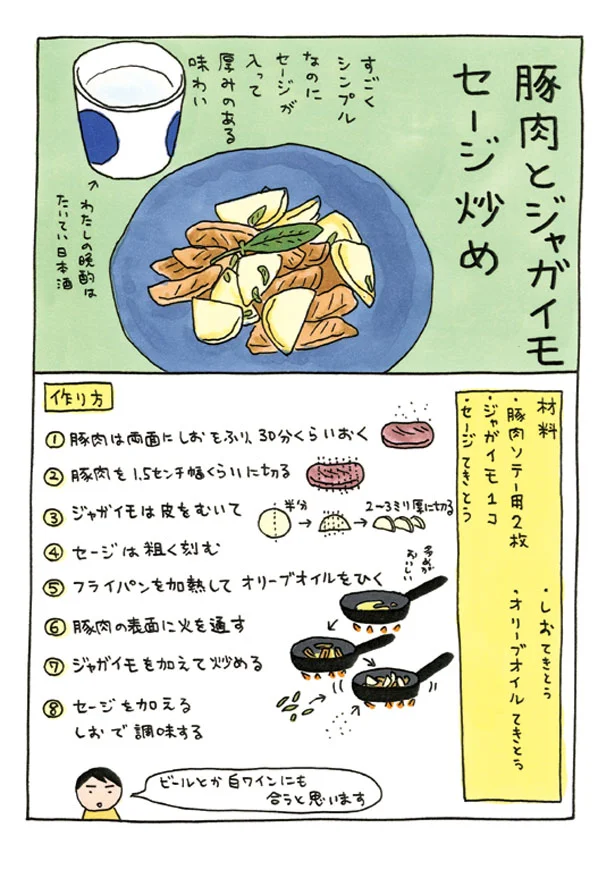 豚肉とジャガイモ
セージ炒め
すごく
シンプル
なのに
セージが
入って
厚みのある
味わい
わたしの晩酌は
たいてい日本酒
材料
・豚肉ソテー用2枚
・ジャガイモ1コ
・セージてきとう
・しおてきとう
・オリーブオイルてきとう
作り方
① 豚肉は両面にしおをふり、30分くらいおく
② 豚肉を1.5センチ幅くらいに切る
③ ジャガイモは皮をむいて
半分
2〜3ミリ厚に切る
④ セージは粗く刻む
⑤ フライパンを加熱してオリーブオイルをひく
多めが
おいしい
⑥ 豚肉の表面に火を通す
⑦ ジャガイモを加えて炒める
⑧ セージを加える
しおで調味する
ビールとか白ワインにも
合うと思います